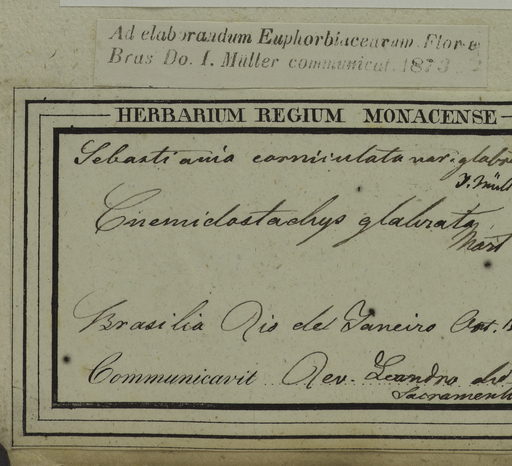 Ad elaborandum Euphorbiacearum Flor
Bras Do. I. Müller communicat. 1873
HERBARIUM REGIUM MONACENSE
Sebastiania corniculata var. glabra
J. Müll
Cnemidostachys glabrata
Mart
Brasilia Rio de Janeiro
Communicavit Rev. Leandro do
Sacramento